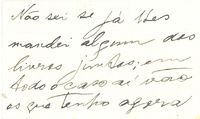 Não sei se já lhes
mandei algum dos
livros juntos; em
todo o caso aí vão
os que tenho agora